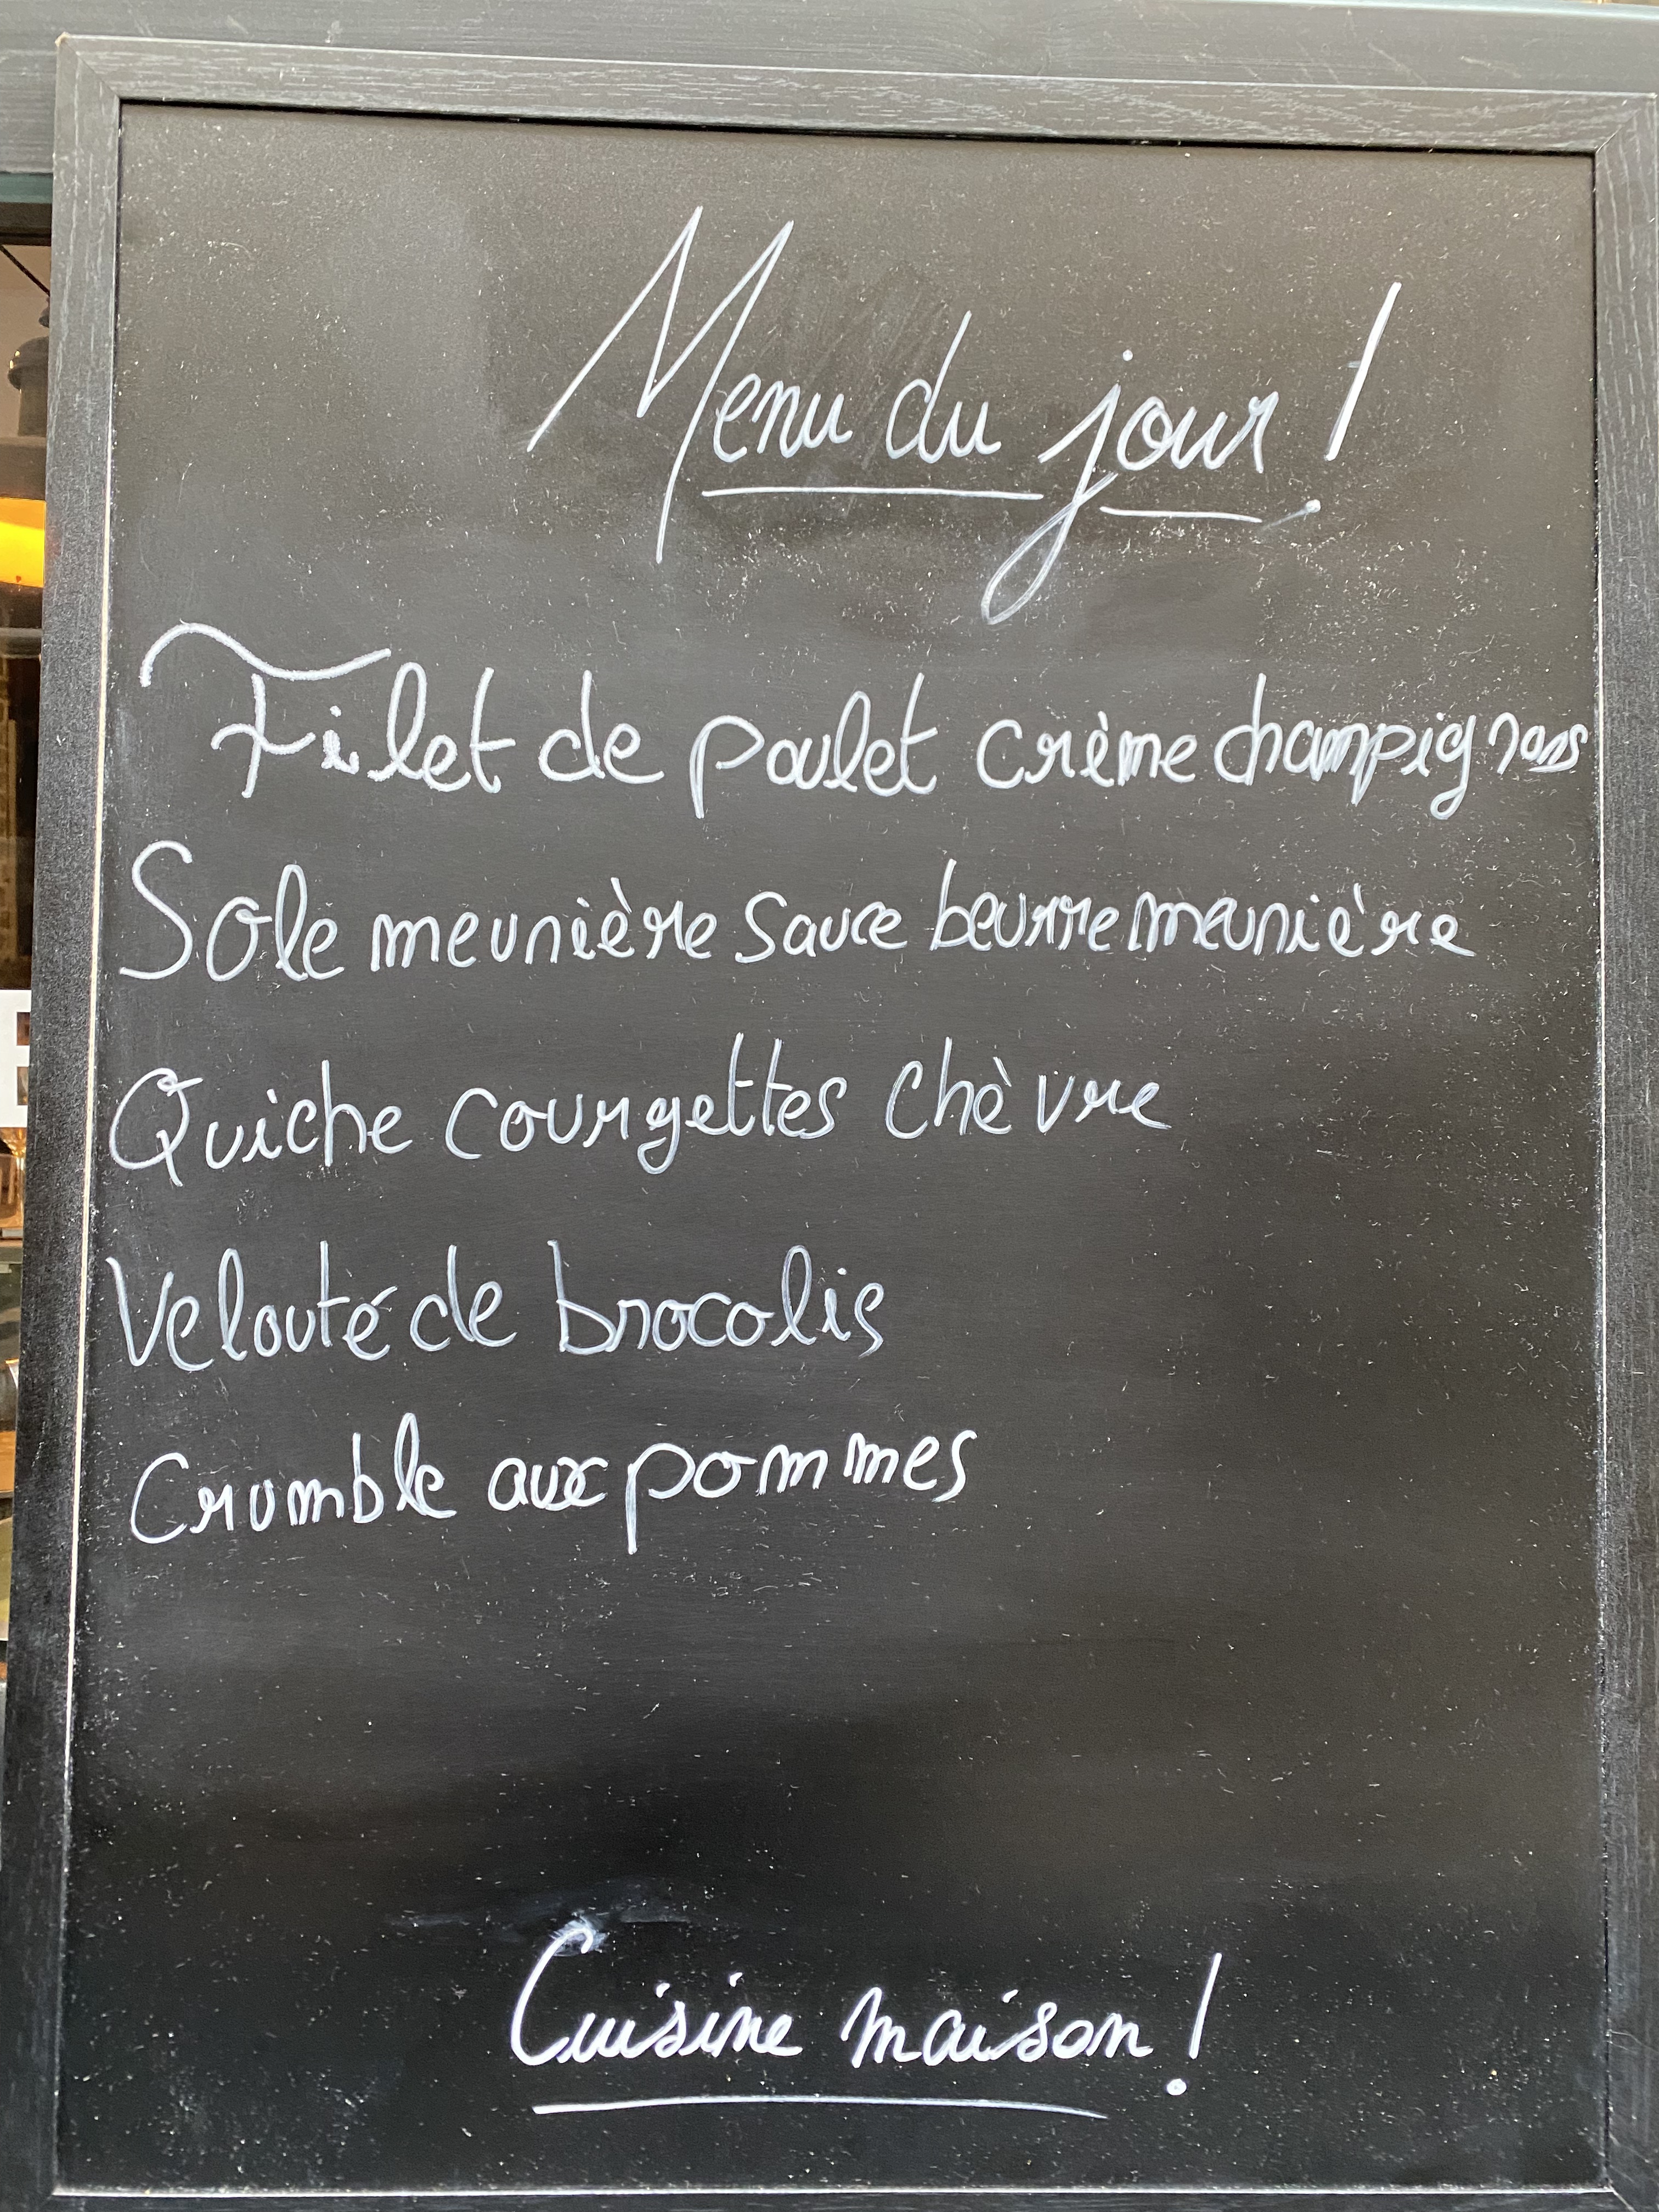 Menu du jour !
Filet de poulet crème champignons
Sole meunière sauce beurre meunière
Quiche courgettes chèvre
Velouté de brocolis
Crumble aux pommes
Cuisine maison !